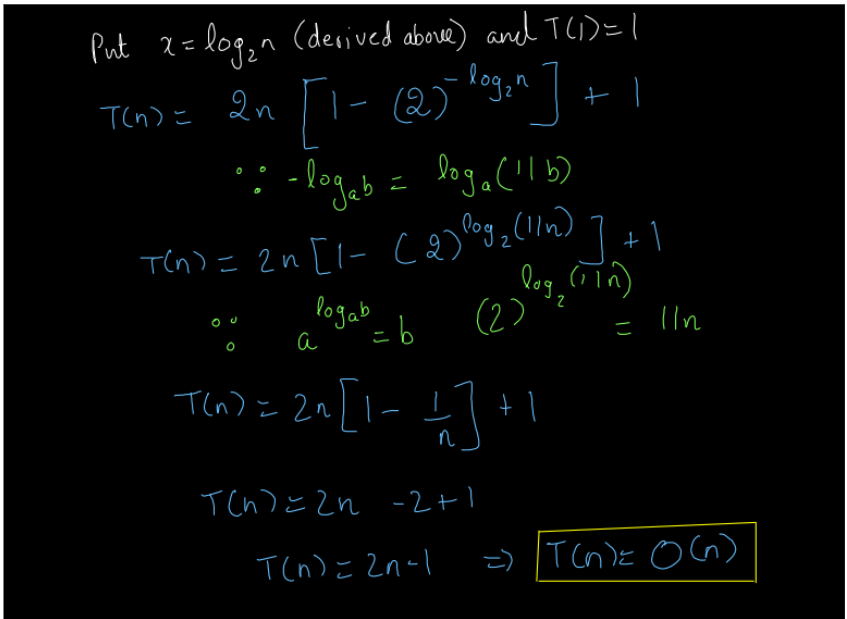 Put x = log₂n (derived above) and T(1)=1
T(n) = 2n [1 - (2)^(-log₂n)] + 1
∵ -logₐb = logₐ(1/b)
T(n) = 2n [1 - (2)^(log₂(1/n))] + 1
∵ a^(logₐb) = b (2)^(log₂(1/n)) = 1/n
T(n) = 2n [1 - 1/n] + 1
T(n) = 2n - 2 + 1
T(n) = 2n - 1 ⇒ T(n) = O(n)